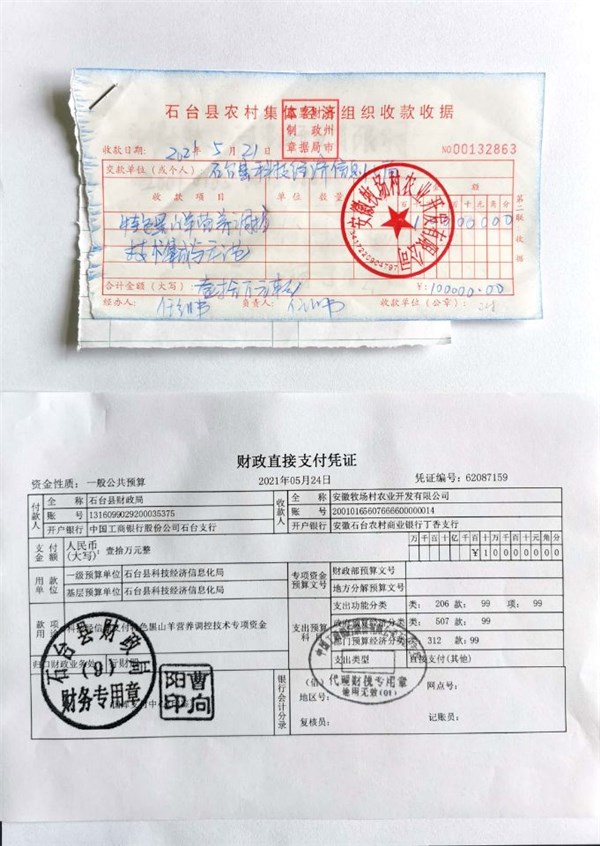 石台县农村集体经济组织收款收据
收款日期: 2021年5月21日 NO 00132863
交款单位(或个人): 石台县科技经济信息化局
收款项目 单位 数量
十元角分
特色黑山羊营养调控
技术
第二联:收据
合计金额(大写) 壹拾万元 ¥:100000.00
经办人: 负责人: 收款单位(公章):
安徽牧场村农业开发有限公司
财政直接支付凭证
资金性质: 一般公共预算 2021年05月24日 凭证编号: 62087159
付款人 全称 石台县财政局 收款人 全称 安徽牧场村农业开发有限公司
账号 1316099029200035375 账号 20010165607666600000014
开户银行 中国工商银行股份公司石台支行 开户银行 安徽石台农村商业银行丁香支行
支付金额 人民币(大写): 壹拾万元整 万千百十亿千百十万千百十元角分
¥10000000
用款单位 一级预算单位 石台县科技经济信息化局 专项资金预算文号 财政部预算文号
基层预算单位 石台县科技经济信息化局 地方分解预算文号
款项用途 特色黑山羊营养调控技术专项资金 支出预算科目 支出功能分类 类: 206 款: 99 项: 99
政府预算经济分类 类: 507 款: 99
部门预算经济分类 类: 312 款: 99
归口财政业务处 支出类型 直接支付(其他)
石台县财政局
(6)
财务专用章
曹向阳印
代理财税专用章
银行会计分录 (借) 网点号:
地区号:
复核员: 记账员: